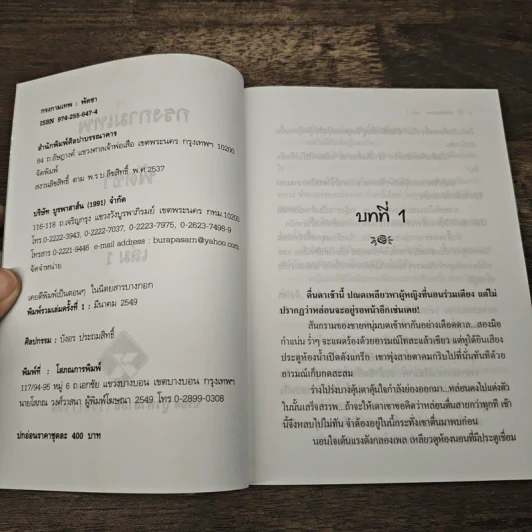 กรงกามเทพ : พัดชา
ISBN 974-255-647-4
สำนักพิมพ์ศิลปาบรรณาคาร
84 ถ.อัษฎางค์ แขวงศาลเจ้าพ่อเสือ เขตพระนคร กรุงเทพฯ 10200
จัดพิมพ์
สงวนลิขสิทธิ์ ตาม พ.ร.บ.ลิขสิทธิ์ พ.ศ.2537
บริษัท บูรพาสาส์น (1991) จำกัด
116-118 ถ.เจริญกรุง แขวงวังบูรพาภิรมย์ เขตพระนคร กทม.10200
โทร.0-2222-3943, 0-2222-7037, 0-2223-7975, 0-2623-7498-9
โทรสาร 0-2221-9446 e-mail address : burapasarn@yahoo.com
จัดจำหน่าย
เคยตีพิมพ์เป็นตอนๆ ในนิตยสารบางกอก
พิมพ์รวมเล่มครั้งที่ 1 : มีนาคม 2549
ศิลปกรรม : บังอร ประถมสิทธิ์
พิมพ์ที่ : โสภณการพิมพ์
117/94-95 หมู่ 6 ถ.เอกชัย แขวงบางบอน เขตบางบอน กรุงเทพฯ
นายโสภณ วงศ์วาสนา ผู้พิมพ์โฆษณา 2549 โทร.0-2899-0308
ปกอ่อนราคาชุดละ 400 บาท
บทที่ 1
ตื่นตาเช้านี้ ปณตเหลียวหาผู้หญิงที่นอนร่วมเตียง แต่ไม่
ปรากฏว่าหล่อนจะอยู่รอหน้าอีกเช่นเคย!
สันกรามของชายหนุ่มบดเข้าหากันอย่างเดือดดาล...สองมือ
กำแน่น ร่ำๆ จะแผดร้องด้วยอารมณ์โทสะแล้วเชียว แต่พูได้ยินเสียง
ประตูห้องน้ำเปิดดังแกร๊ก เขาพุ่งสายตาคมกริบไปที่นั่นทันทีด้วย
อารมณ์เก็บกดสะสม
ร่างโปร่งบางคุ้นตาคุ้นใจกำลังย่องออกมา...หล่อนคงไปแต่งตัว
ในนั้นเสร็จสรรพ...ถ้าจะให้เดาเขาขอคิดว่าหล่อนตื่นสายกว่าทุกที เช้า
นี้จึงหลบไปไม่ทัน จำต้องอยู่ในนี้กระทั่งเขาตื่นมาพบก่อน
นอนใจเต้นแรงดังกลองเพล เหลียวดูห้องนอนที่มีประตูเชื่อม